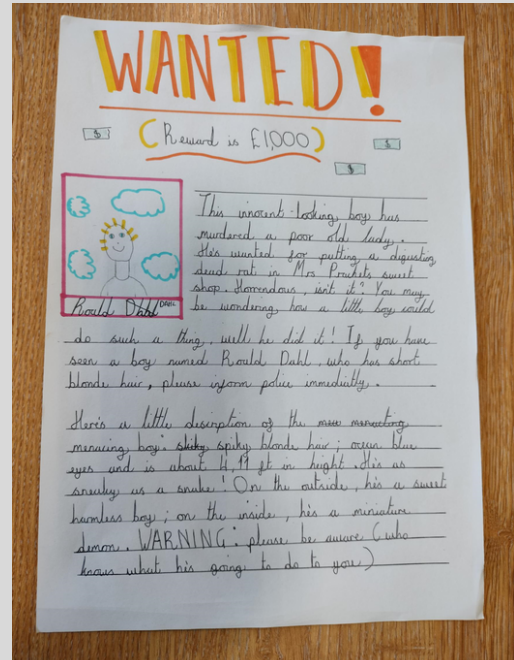 WANTED!
(Reward is £1,000)
$
$
$
This innorent-looking boy has
murdered a poor old lady.
He's wanted for putting a digusting
dead rat in Mrs Prachets sweet
shop. Horrendous, isn't it? You may
be wondering how a little boy could
Rould Dahl DAHL
do such a thing, well he did it! If you have
seen a boy named Rould Dahl, who has short
blonde hair, please inform police immediatly.
Here's a little description of the menacting
menacing boy: sticky spiky blonde hair; ocean blue
eyes and is about 4,11 ft in height. He's as
sneaky as a snake! On the outside, he's a sweet
harmless boy; on the inside, he's a miniature
demon. WARNING: please be aware (who
knows what he's going to do to you)